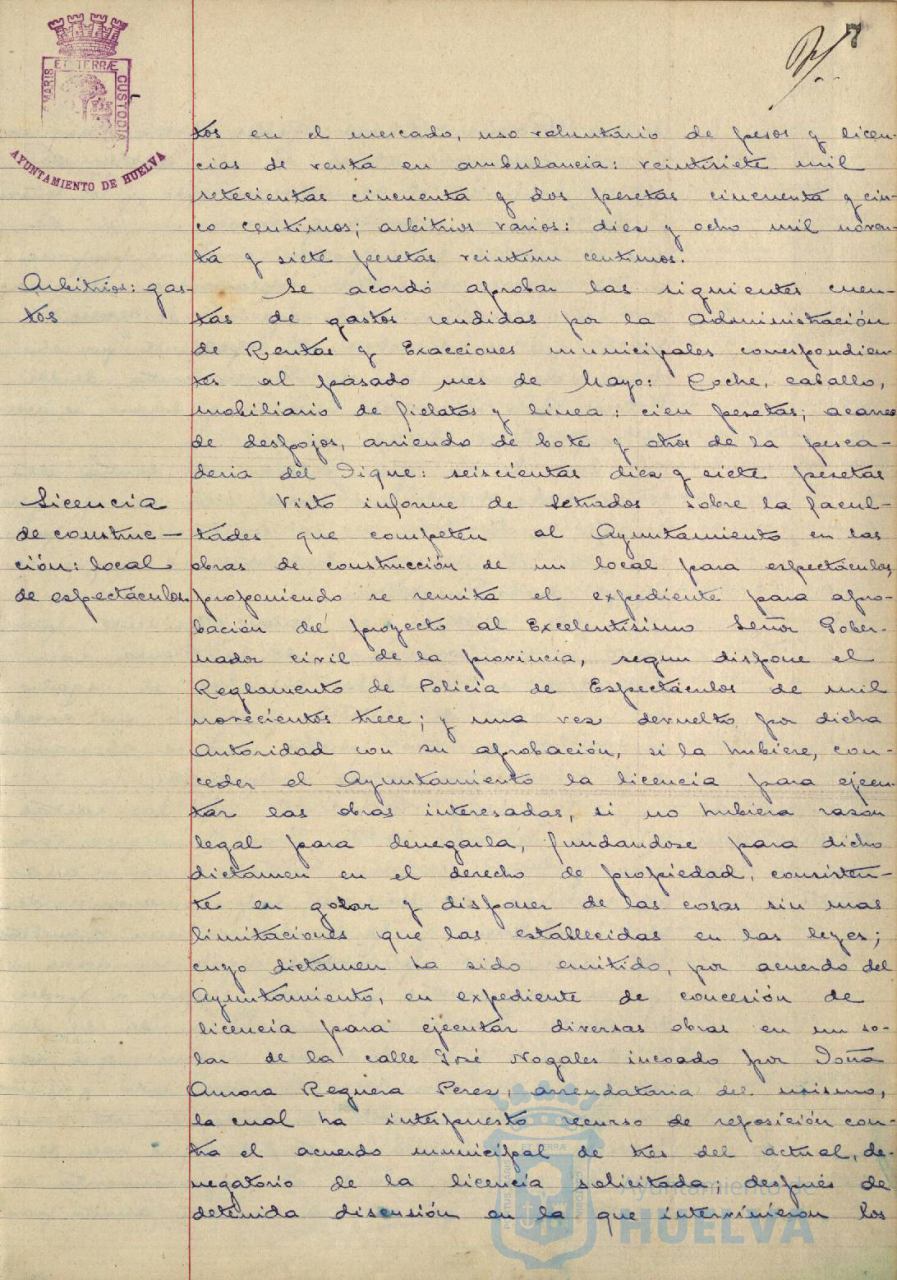 7
MARIS
ET TERRÆ
CUSTODIA
AYUNTAMIENTO DE HUELVA
tos en el mercado, uso voluntario de pesos y licen-
cias de venta en ambulancia: veintisiete mil
setecientas cincuenta y dos pesetas cincuenta y cin-
co centimos; arbitrios varios: diez y ocho mil noven-
ta y siete pesetas veintiun centimos.
Arbitrios: gas-
tos
Se acordó aprobar las siguientes cuen-
tas de gastos rendidas por la Administración
de Rentas y Exacciones municipales correspondien-
tes al pasado mes de Mayo: Coche, caballo,
mobiliario de fielatos y linea: cien pesetas; acarreo
de despojos, arriendo de bote y otros de la pesca-
deria del Dique: seiscientas diez y siete pesetas
Licencia
de construc-
ción: local
de espectáculos
Visto informe de Letrados sobre la facul-
tades que competen al Ayuntamiento en las
obras de construcción de un local para espectáculos,
proponiendo se remita el expediente para apro-
bación del proyecto al Excelentisimo Señor Gober-
nador civil de la provincia, segun dispone el
Reglamento de Policia de Espectáculos de mil
novecientos trece; y una vez devuelto por dicha
Autoridad con su aprobación, si la hubiere, con-
ceder el Ayuntamiento la licencia para ejecu-
tar las obras interesadas, si no hubiera razón
legal para denegarla, fundandose para dicho
dictámen en el derecho de propiedad, consisten-
te en gozar y disponer de las cosas sin mas
limitaciones que las establecidas en las leyes;
cuyo dictámen ha sido emitido, por acuerdo del
Ayuntamiento, en expediente de concesión de
licencia para ejecutar diversas obras en un so-
lar de la calle José Nogales incoado por Doña
Aurora Reguera Perez, arrendataria del mismo,
la cual ha interpuesto recurso de reposición con-
tra el acuerdo municipal de tres del actual, de-
negatorio de la licencia solicitada; después de
detenida discusión en la que intervinieron los
Ayuntamiento de
HUELVA